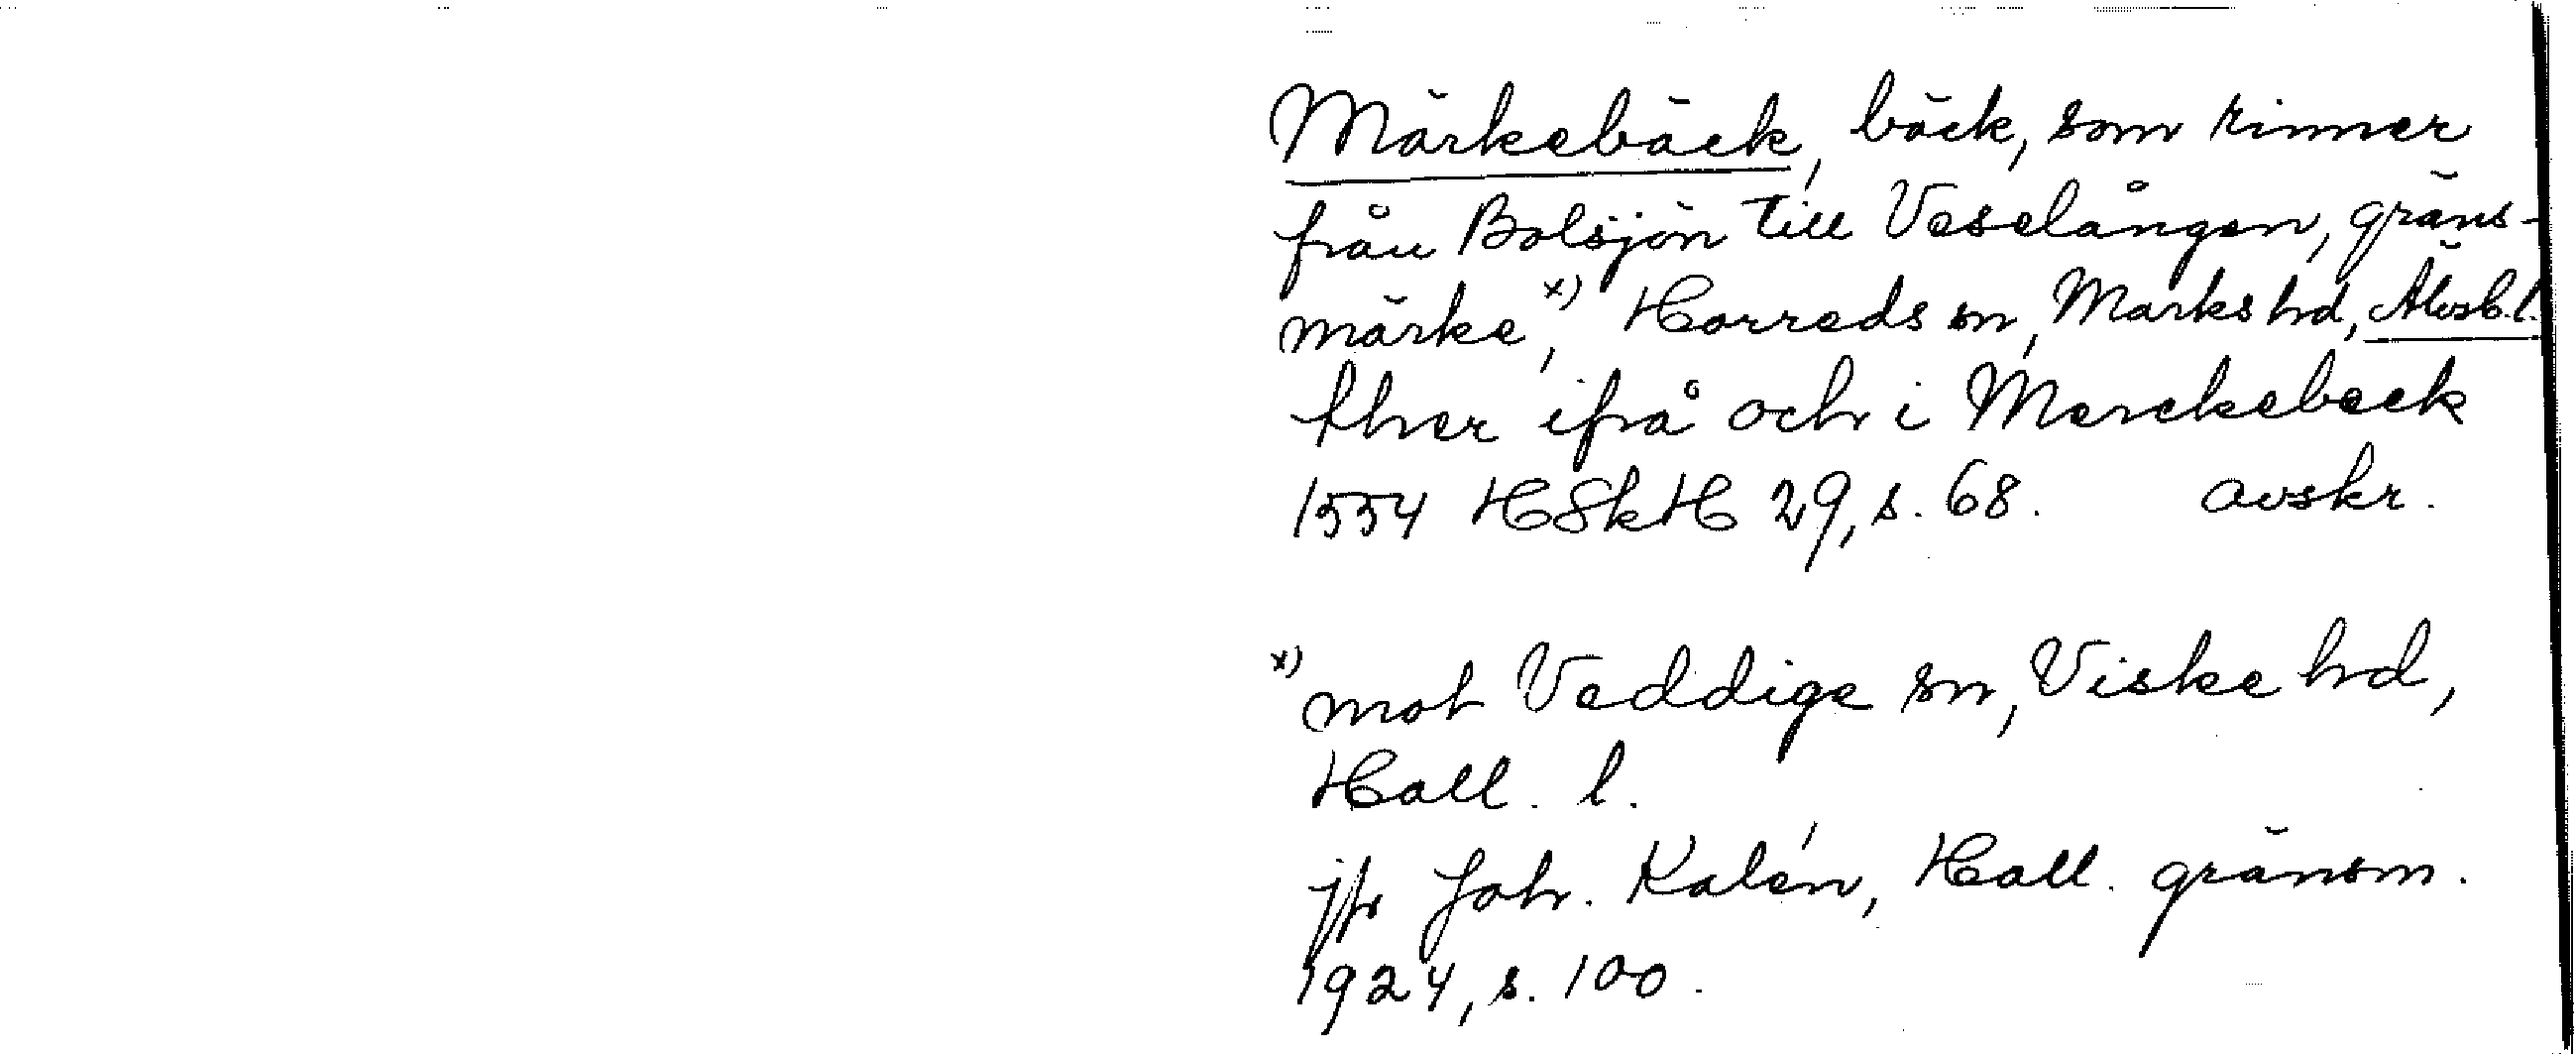 Märkebäck, bäck, som rinner
från Bolsjön till Veselången, gräns-
märke x), Horreds sn, Marks hd, Älvsb. l.
ther ifrå och i Merckebeck
1554 HSkH 29, s. 68. avskr.
x) mot Veddige sn, Viske hd,
Hall. l.
jfr Joh. Kalén, Hall. gränsm.
1924, s. 100.